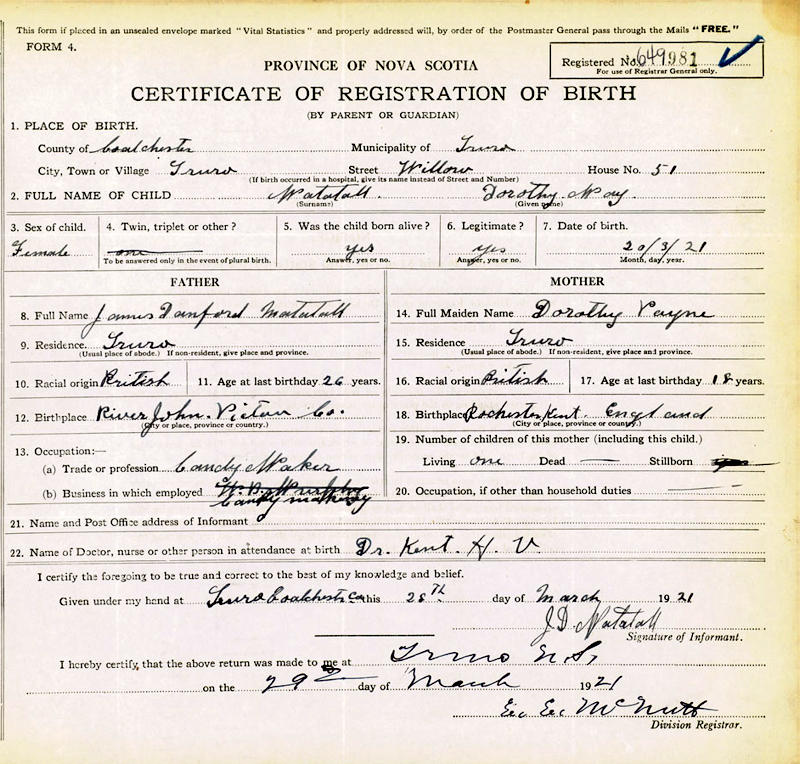 This form if placed in an unsealed envelope marked "Vital Statistics" and properly addressed will, by order of the Postmaster General pass through the Mails "FREE."
FORM 4.
Registered No. 649981
For use of Registrar General only.
PROVINCE OF NOVA SCOTIA
CERTIFICATE OF REGISTRATION OF BIRTH
(BY PARENT OR GUARDIAN)
1. PLACE OF BIRTH.
County of Coalchester Municipality of Truro
City, Town or Village Truro Street Willow House No. 51
(If birth occurred in a hospital, give its name instead of Street and Number)
2. FULL NAME OF CHILD Matatall. Dorothy May
(Surname) (Given name)
3. Sex of child. 4. Twin, triplet or other? 5. Was the child born alive? 6. Legitimate? 7. Date of birth.
Female one yes yes 20/3/21
To be answered only in the event of plural birth. Answer, yes or no. Answer, yes or no. Month, day, year.
FATHER
8. Full Name James Danford Matatall
9. Residence. Truro
(Usual place of abode.) If non-resident, give place and province.
10. Racial origin British 11. Age at last birthday 26 years.
12. Birthplace River John. Pictou Co.
(City or place, province or country.)
13. Occupation:—
(a) Trade or profession Candy Maker
(b) Business in which employed
MOTHER
14. Full Maiden Name Dorothy Payne
15. Residence Truro
(Usual place of abode.) If non-resident, give place and province.
16. Racial origin British 17. Age at last birthday 18 years.
18. Birthplace Rochester, Kent. England
(City or place, province or country.)
19. Number of children of this mother (including this child.)
Living one Dead — Stillborn
20. Occupation, if other than household duties —
21. Name and Post Office address of Informant
22. Name of Doctor, nurse or other person in attendance at birth Dr. Kent. H. V.
I certify the foregoing to be true and correct to the best of my knowledge and belief.
Given under my hand at Truro Coalchester Co this 28TH day of March 1921
J.D. Matatall
Signature of Informant.
I hereby certify, that the above return was made to me at Truro N.S,
on the 29 day of March 1921
Ee. Ee. McNutt
Division Registrar.